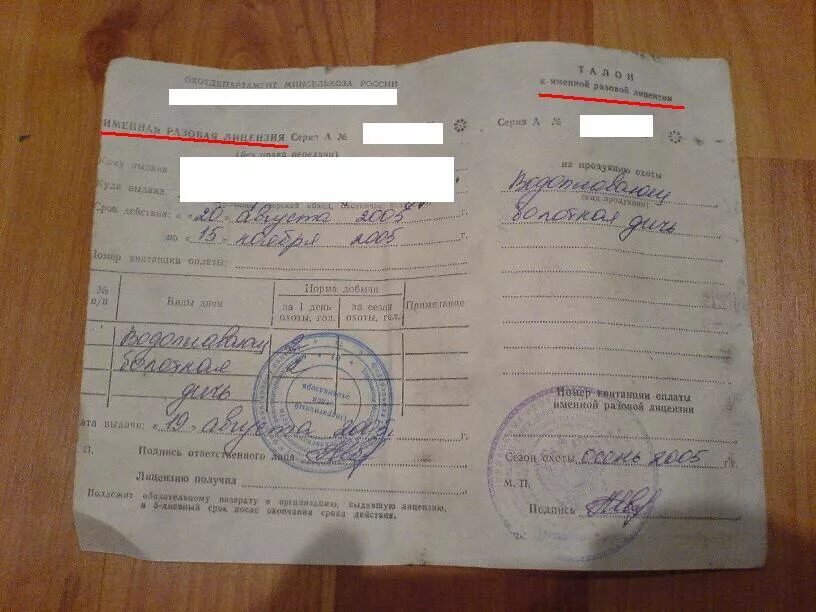 ОХОТДЕПАРТАМЕНТ МИНСЕЛЬХОЗА РОССИИ
ИМЕННАЯ РАЗОВАЯ ЛИЦЕНЗИЯ Серия А №
(без права передачи)
Кому выдана
Куда выдана
Срок действия: с «20» августа 2005 г.
по «15» ноября 2005 г.
Номер квитанции оплаты:
№ п/п
Виды дичи
Норма добычи
за 1 день охоты, гол.
за сезон охоты, гол.
Примечание
Водоплавающ
болотная
дичь
Дата выдачи: «19» августа 2005 г.
П. Подпись ответственного лица
Лицензию получил
Подлежит обязательному возврату в организацию, выдавшую лицензию,
в 5-дневный срок после окончания срока действия.
ТАЛОН
к именной разовой лицензии
Серия А №
на продукцию охоты
Водоплавающ
(вид продукции)
болотная дичь
Номер квитанции оплаты
именной разовой лицензии
Сезон охоты осень 2005 г.
М. П.
Подпись